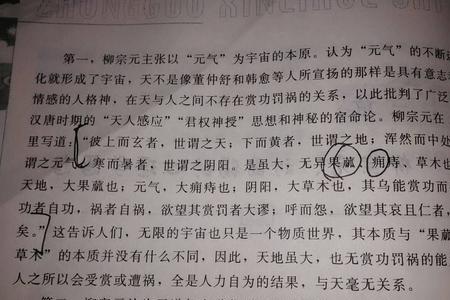 ZHONGGUO XINLIXUE SHI
第一，柳宗元主张以“元气”为宇宙的本原。认为“元气”的不断
化就形成了宇宙，天不是像董仲舒和韩愈等人所宣扬的那样是具有意志
情感的人格神，在天与人之间不存在赏功罚祸的关系，以此批判了广泛
汉唐时期的“天人感应”“君权神授”思想和神秘的宿命论。柳宗元在
里写道：“彼上而玄者，世谓之天；下而黄者，世谓之地；浑然而中处
谓之元气；寒而暑者，世谓之阴阳。是虽大，无异果蓏，痈痔，草木也
天地，大果蓏也；元气，大痈痔也；阴阳，大草木也，其乌能赏功而
功者自功，祸者自祸，欲望其赏罚者大谬；呼而怨，欲望其哀且仁者，
矣。”这告诉人们，无限的宇宙也只是一个物质世界，其本质与“果蓏
草木”的本质并没有什么不同，因此，天地虽大，也无赏功罚祸的能
人之所以会受赏或遭祸，全是人力自为的结果，与天毫无关系。